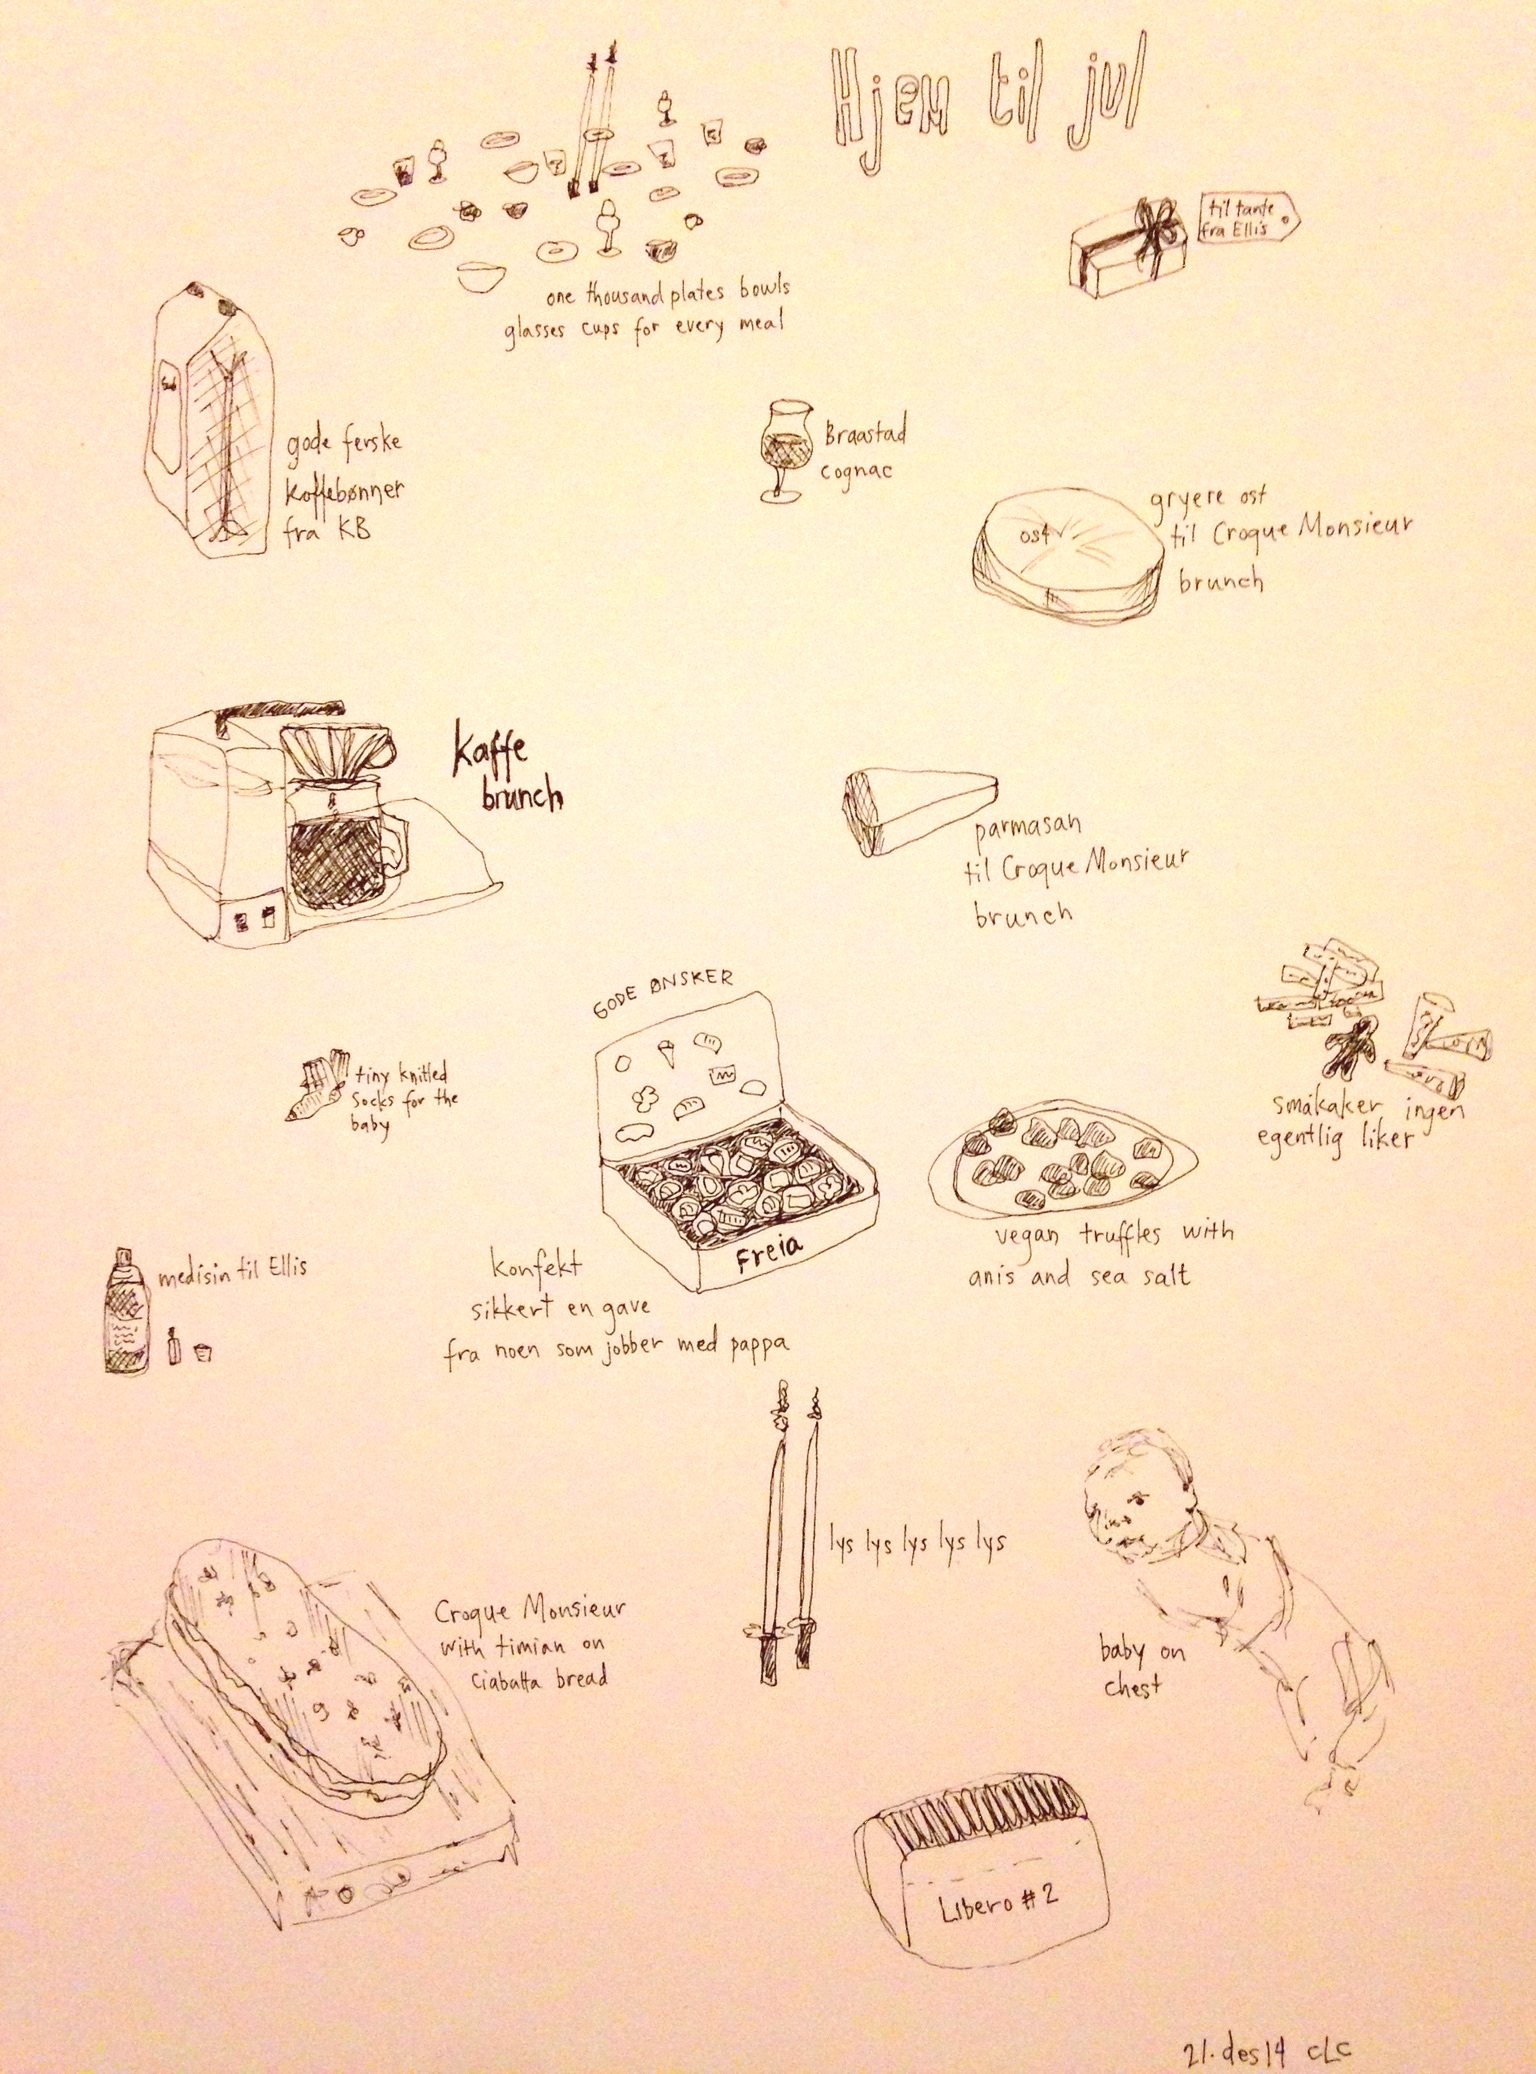 Hjem til jul
one thousand plates bowls
glasses cups for every meal
til tante
fra Ellis
gode ferske
kaffebønner
fra KB
Braastad
cognac
ost
gryere ost
til Croque Monsieur
brunch
kaffe
brunch
parmasan
til Croque Monsieur
brunch
GODE ØNSKER
Freia
tiny knitted
socks for the
baby
småkaker ingen
egentlig liker
vegan truffles with
anis and sea salt
medisin til Ellis
konfekt
sikkert en gave
fra noen som jobber med pappa
lys lys lys lys lys
Croque Monsieur
with timian on
Ciabatta bread
baby on
chest
Libero #2
21.des14 CLC